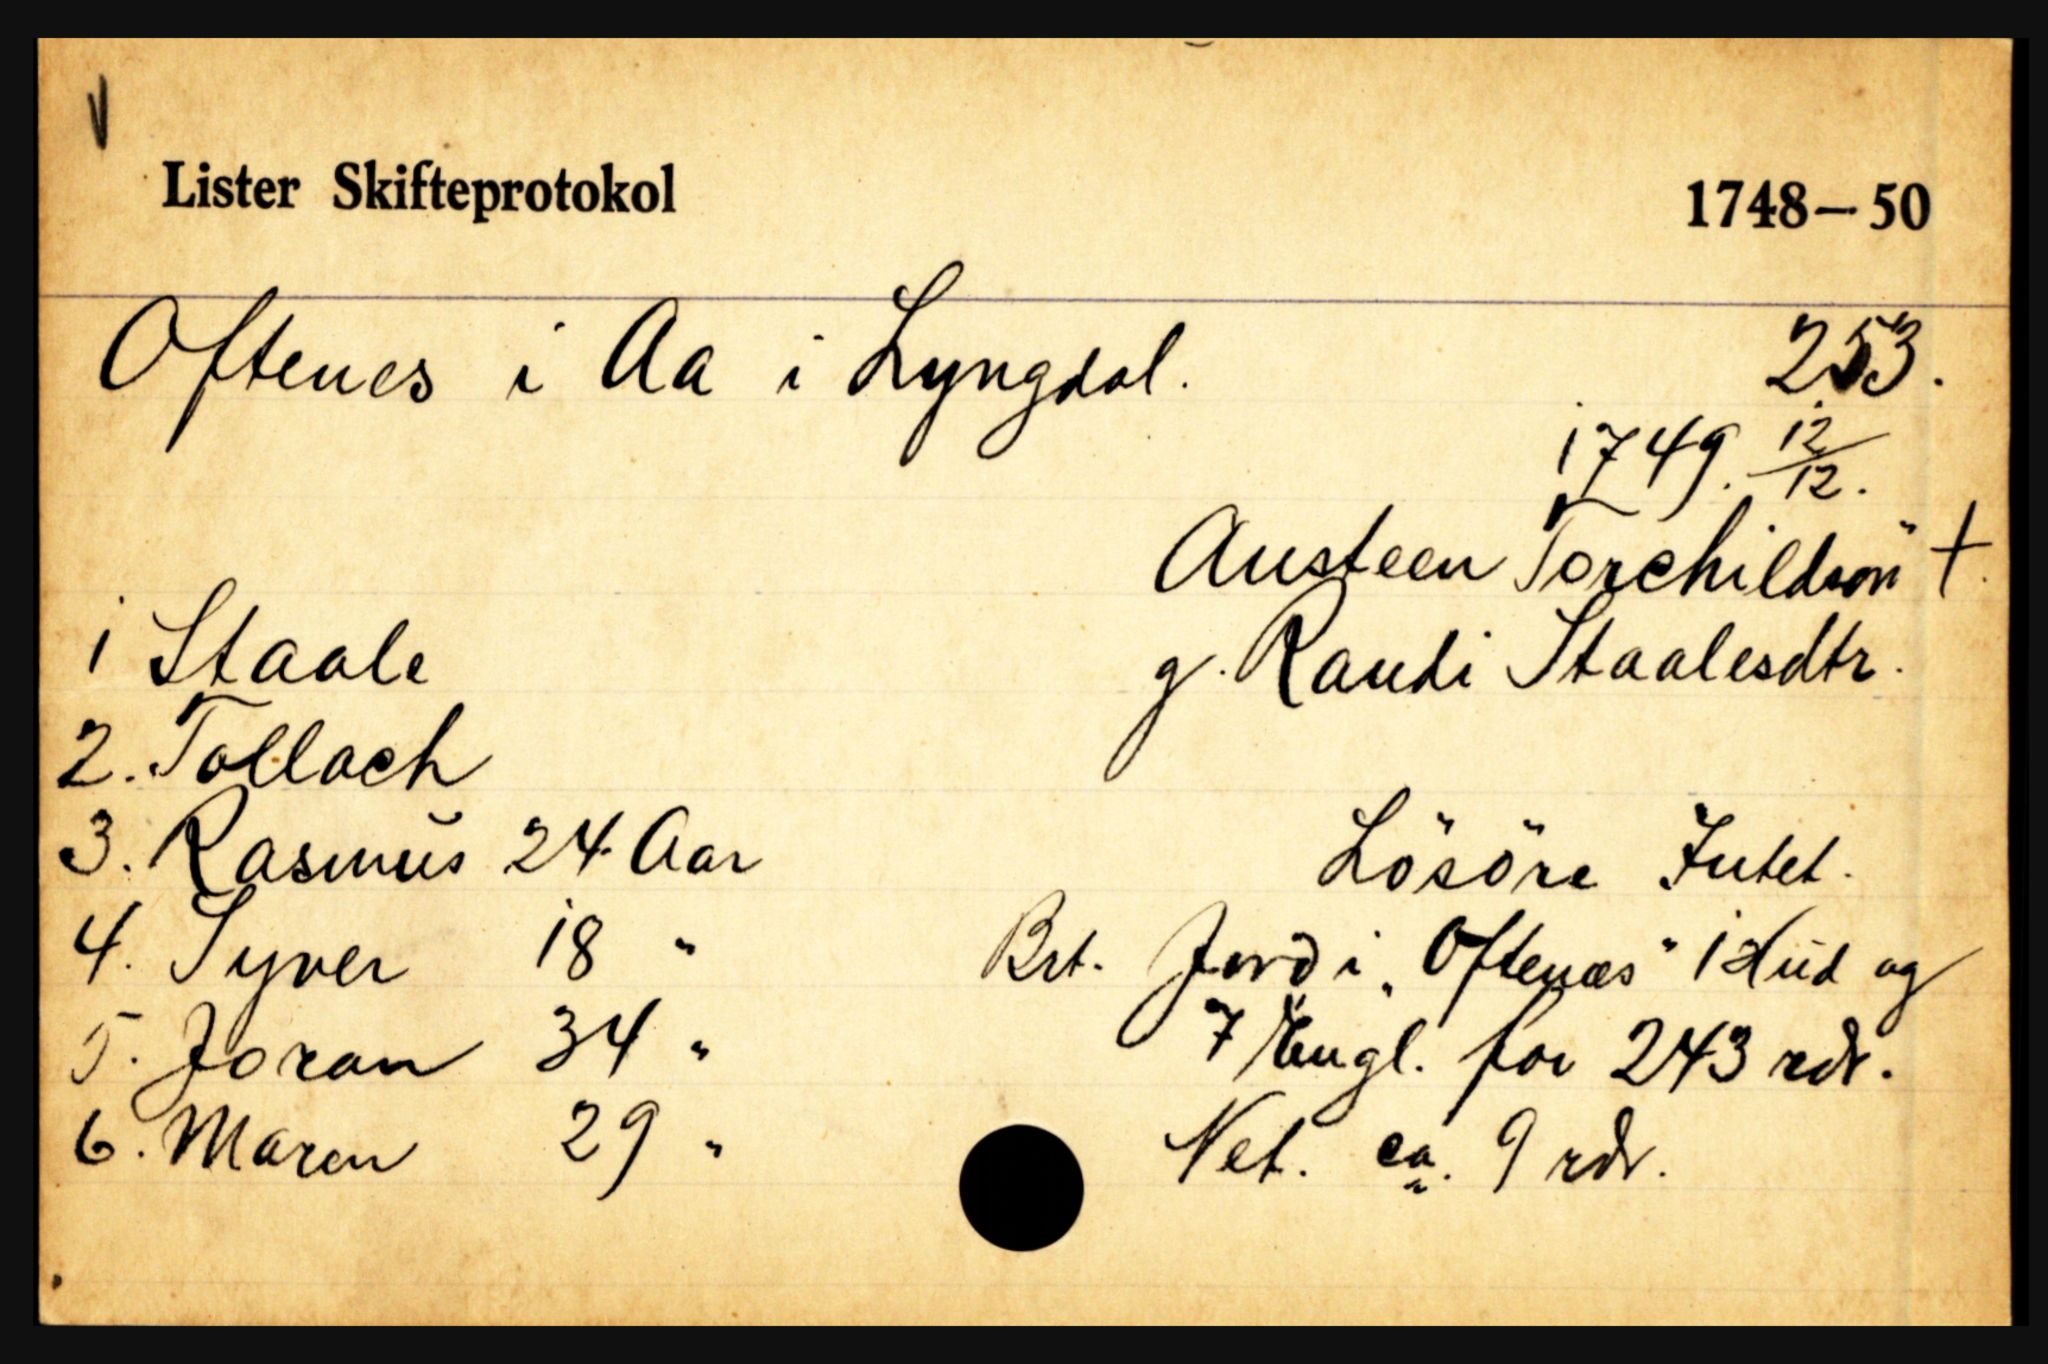 Lister Skifteprotokol 1748–50
Oftenes i Aa i Lyngdal. 253.
1749. 12/12.
Austeen Torchildsön †.
g. Randi Staalesdtr.
1 Staale
2. Tollach
3. Rasmus 24 Aar
4. Syver 18 "
5. Joran 34 "
6. Maren 29 "
Lösöre Intet.
Brt. Jord i „Oftenæs" 1 Hud og
7 Engl. for 243 rdr.
Net. ca. 9 rdr.